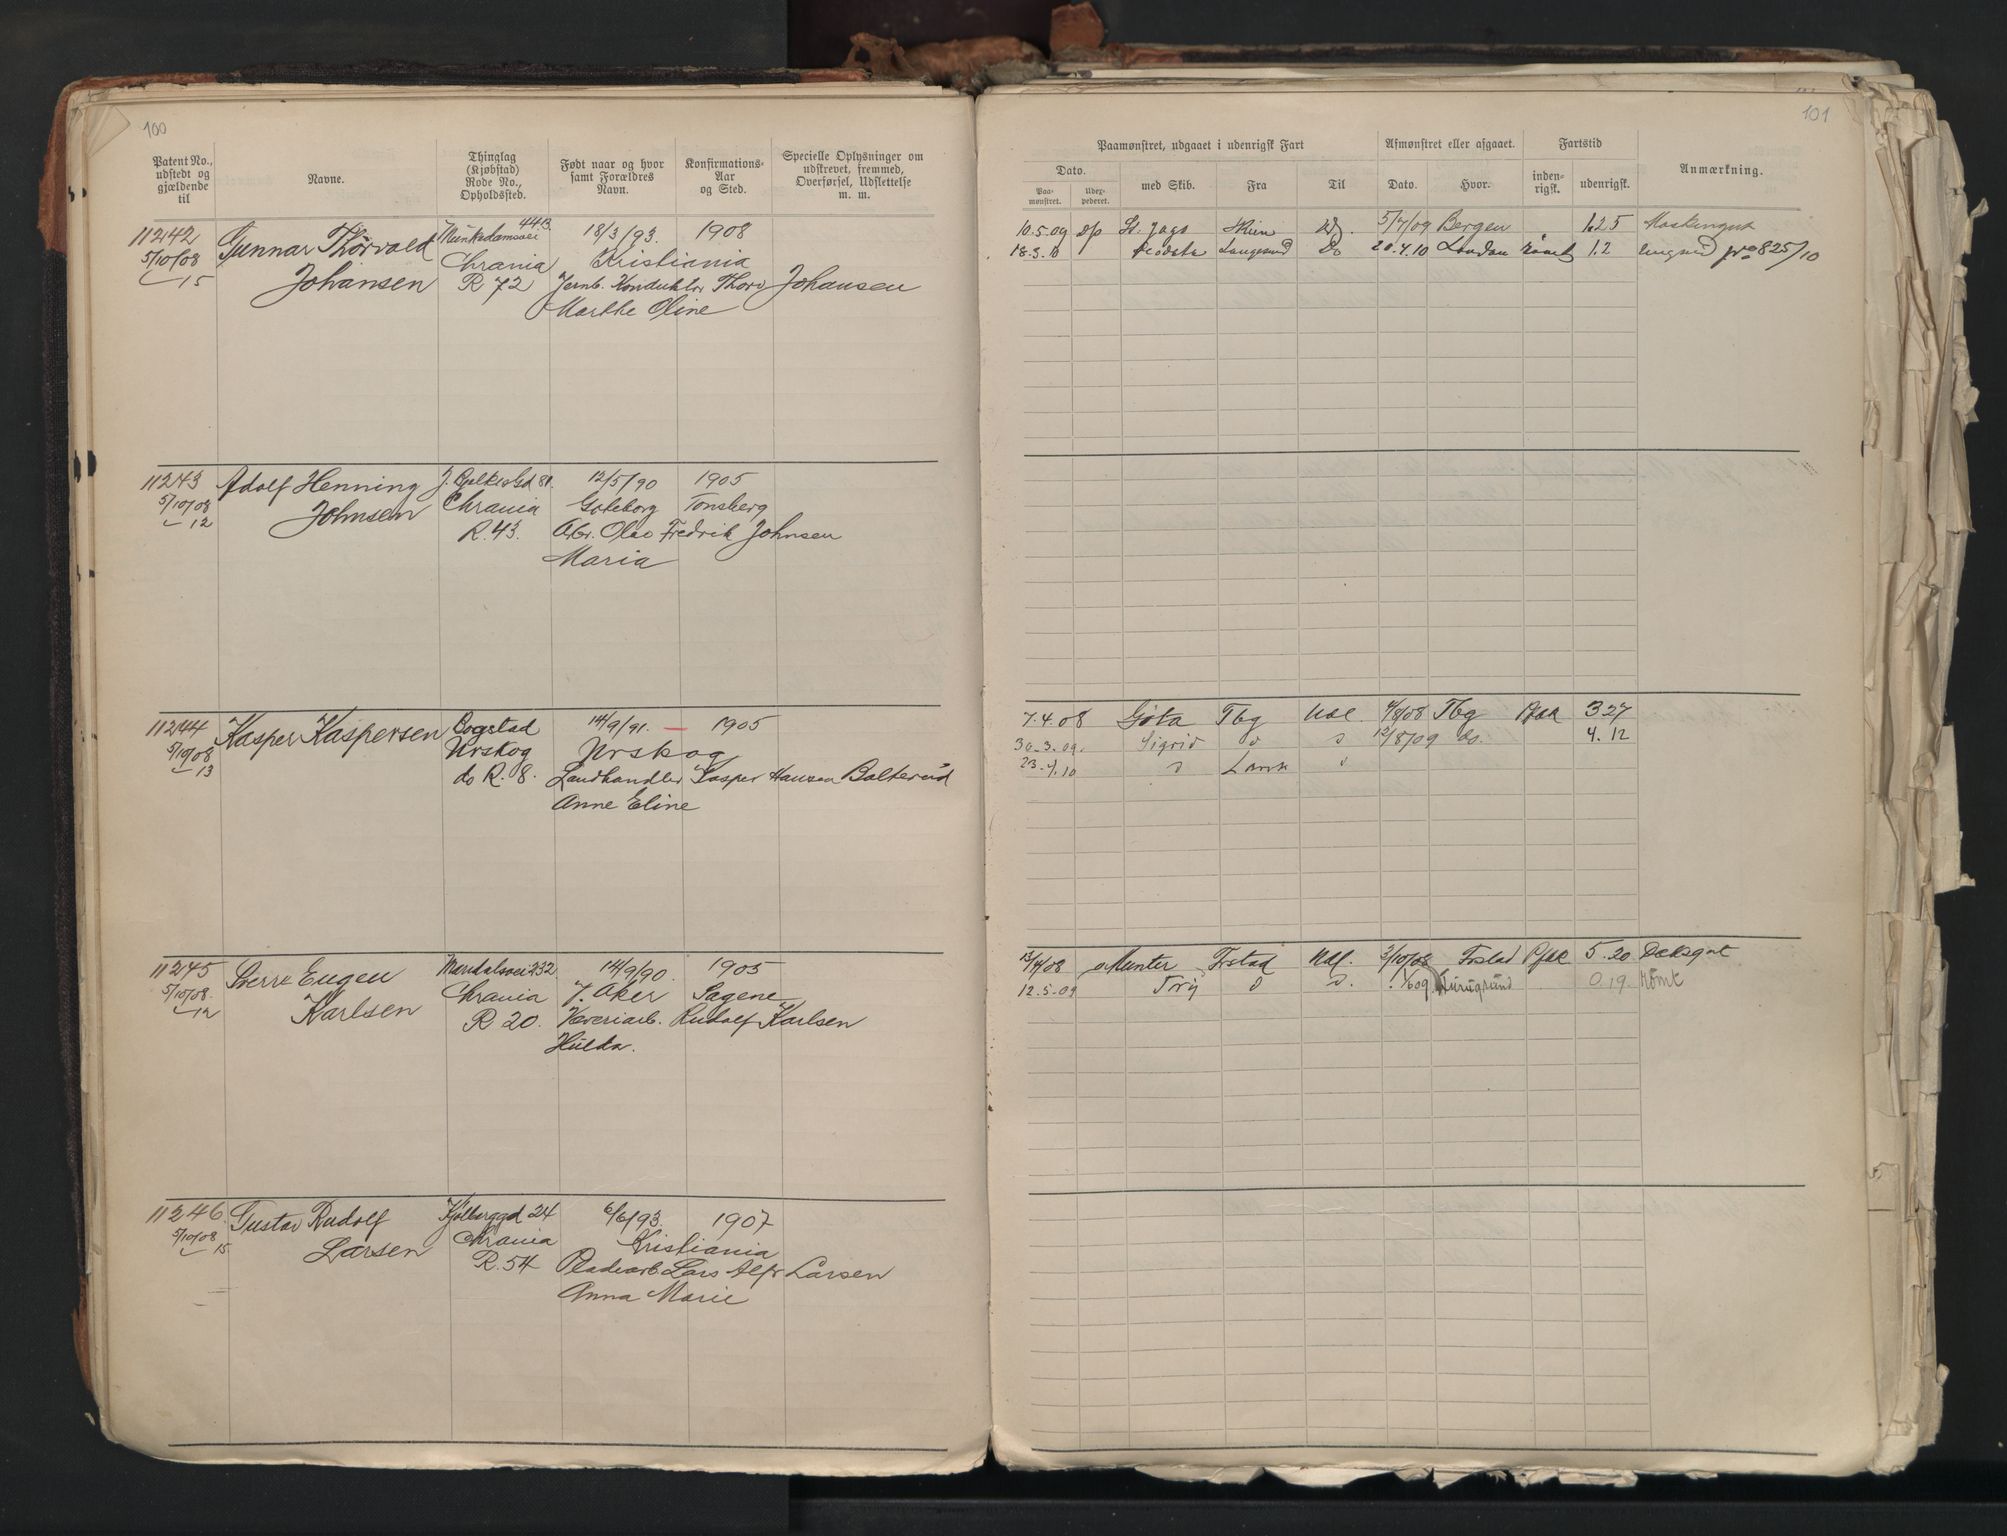 100
Patent No., udstedt og gjældende til
Navne.
Thinglag (Kjøbstad) Rode No., Opholdssted.
Født naar og hvor samt Forældres Navn.
Konfirmations-Aar og Sted.
Specielle Oplysninger om udskrevet, fremmed, Overførsel, Udslettelse m. m.
11242 Gunnar Thorvald Munkedamsvei 44B. 18/3/93. 1908
5/10/08 Chrania Kristiania
15 Johansen R 72 Jernb. Konduktør Thorv Johansen
Marthe Oline
11243 Adolf Henning 81. 12/5/90 1905
5/10/08 Johnsen Chrania Goteborg Tonsberg
12 R. 43. Arb. Olav Fredrik Johnsen
Maria
11244 Kasper Kaspersen Bogstad 14/9/91. — 1905
5/10/08 Urskog Urskog
13 do R. 8. Landhandler Kasper Hansen Bolterud
Anne Eline
11245 Sverre Eugen Mandalsvei 232. 14/9/90. 1905
5/10/08. Karlsen Chrania V. Aker Sagene
12 R 20. Væveriarb. Rudolf Karlsen
Hulda.
11246 Gustav Rudolf Kjølberggd 24 6/6/93. 1907
5/10/08 Larsen Chrania Kristiania
15 R. 54 Pladearb. Lars Alfr Larsen
Anna Marie
101
Paamønstret, udgaaet i udenrigsk Fart
Afmønstret eller afgaaet.
Fartstid
Anmærkning.
Dato.
Paa-mønstret.
Uder-pederet.
med Skib.
Fra
Til
Dato.
Hvor.
inden-rigsk.
udenrigsk.
10.5.09 St. Jago Skien 5/7/09 Bergen 1.25
18.3.10 Langesund Do 20.4.10 London rømt 1.2 825/10
7.4.08 Gøta Tbg Udl. 4/8/08 Tbg 3 27
30.3.09. Sigrid d d 12/8/09 do. 4. 12
23.4/10 d Larvik d
13/4/08 Munter Frstad Udl. 3/10/08 Frstad 5. 20 Dæksgut
12.5.09 Tryg d d. 1/6 09 0.19. Rømt